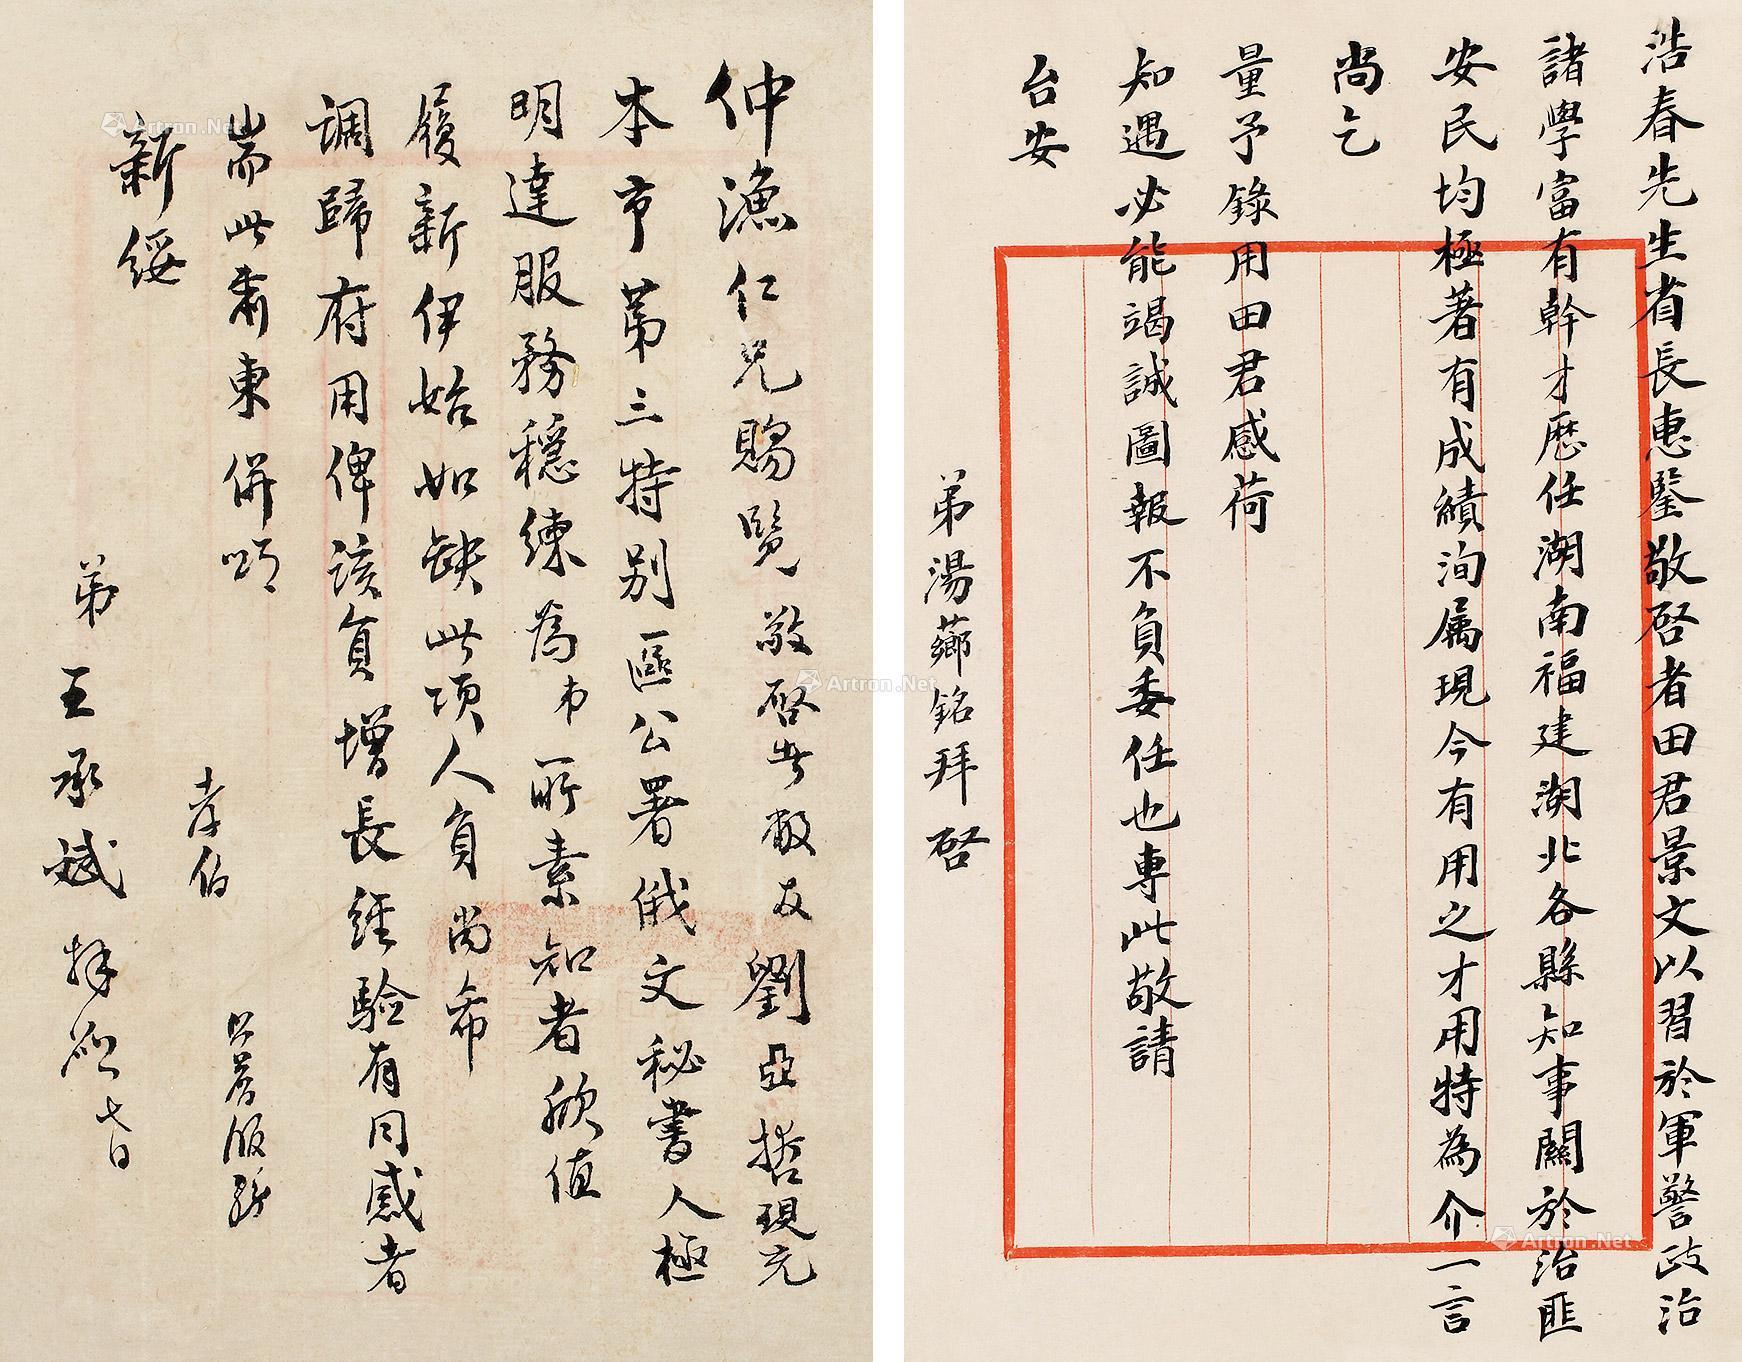 浩春先生省長惠鑒敬啓者田君景文以習於軍警政治
諸學富有幹才歷任湖南福建湖北各縣知事關於治匪
安民均極著有成績洵属現今有用之才用特為介一言
尚乞
量予錄用田君感荷
知遇必能竭誠圖報不負委任也專此敬請
台安
弟湯薌銘拜啓
仲漁仁兄賜覽敬啓者敝友劉亞哲現充
本市第三特別區公署俄文秘書人極
明達服務穩練為弟所素知者欣值
履新伊始如缺此項人員尚希
調歸府用俾該員增長經驗有同感者
耑此肅東併頌
新綏
孝伯
弟王承斌拜啟
Artron.Net
Artron.Net
Artron.Net